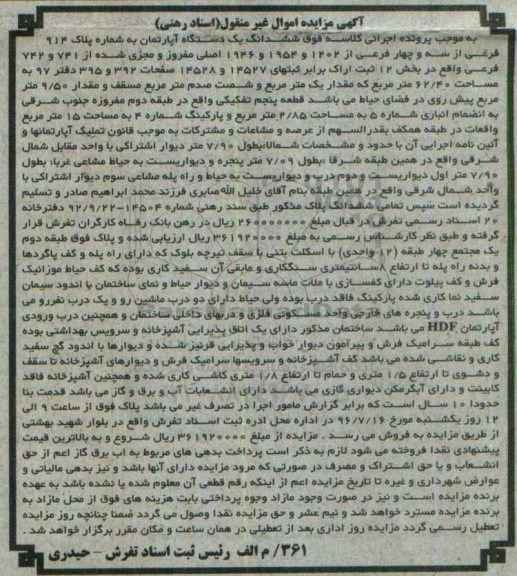 آگهی مزایده اموال غیر منقول(اسناد رهنی)
به موجب پرونده اجرائی کلاسه فوق ششدانگ یک دستگاه آپارتمان به شماره پلاک ۹۱۴
فرعی از سه و چهار فرعی از ۱۲۰۲ و ۱۹۵۴ و ۱۹۴۶ اصلی مفروز و مجزی شده از ۷۴۱ و ۷۴۲
فرعی واقع در بخش ۱۲ ثبت اراک برابر ثبتهای ۱۴۵۲۷ و ۱۴۵۲۸ صفحات ۳۹۲ و ۳۹۵ دفتر ۹۷ به
مساحت ۶۲/۴۰ متر مربع که مقدار یک متر مربع و شصت صدم متر مربع مسقف و مقدار ۹/۵۰ متر
مربع پیش روی در فضای حیاط می باشد قطعه پنجم تفکیکی واقع در طبقه دوم مفروزه جنوب شرقی
به انضمام انباری شماره ۵ به مساحت ۲/۸۵ متر مربع و پارکینگ شماره ۴ به مساحت ۱۵ متر مربع
واقعات در طبقه همکف بقدرالسهم از عرصه و مشاعات و مشترکات به موجب قانون تملیک آپارتمانها و
آئین نامه اجرایی آن با حدود و مشخصات شمالا:بطول ۷/۹۰ متر دیوار اشتراکی با واحد مقابل شمال
شرقی واقع در همین طبقه شرقا :بطول ۷/۰۹ متر پنجره و دیواریست به حیاط مشاعی غربا: بطول
۷/۹۰ متر اول دیواریست و دوم درب و دیواریست به حیاط و راه پله مشاعی سوم دیوار اشتراکی با
واحد شمال شرقی واقع در همین طبقه بنام آقای خلیل الله صابری فرزند محمد ابراهیم صادر و تسلیم
گردیده است سپس تمامی ششدانگ پلاک مذکور طبق سند رهنی شماره ۱۴۵۰۴-۹۲/۹/۲۲ دفترخانه
۲۰ اسناد رسمی تفرش در قبال مبلغ ۲۶۰۰۰۰۰۰۰ ریال در رهن بانک رفاه کارگران تفرش قرار
گرفته و طبق نظر کارشناس رسمی به مبلغ ۳۶۱۹۲۰۰۰۰ ریال ارزیابی شده و پلاک فوق طبقه دوم
یک مجتمع چهار طبقه (۱۲ واحدی) با اسکلت بتنی با سقف تیرچه بلوک که دارای راه پله و کف پاگردها
و بدنه راه پله تا ارتفاع ۸سانتیمتری سنگکاری و مابقی آن سفید کاری بوده که کف حیاط موزائیک
فرش و کف پیلوت دارای کفسازی با ملات ماسه سیمان و دیوار حیاط و نمای ساختمان با اندود سیمان
سفید نما کاری شده پارکینگ فاقد درب بوده ولی حیاط دارای دو درب ماشین رو و یک درب نفررو می
باشد درب و پنجره های خارجی واحد مسکونی فلزی و دربهای داخلی ساختمان و همچنین درب ورودی
آپارتمان HDF می باشد ساختمان مذکور دارای یک اتاق پذیرایی آشپزخانه و سرویس بهداشتی بوده
کف طبقه سرامیک فرش و پیرامون دیوار خواب و پذیرایی قرنیز شده و دیوارها با اندود گچ سفید
کاری و نقاشی شده می باشد کف آشپزخانه و سرویسها سرامیک فرش و دیوارهای آشپزخانه تا سقف
و دشوی تا ارتفاع ۱/۵ متری و حمام تا ارتفاع ۱/۸ متری کاشی کاری شده و همچنین آشپزخانه فاقد
کابینت و دارای آبگرمکن دیواری گازی می باشد دارای انشعابات آب و برق و گاز می باشد قدمت بنا
حدودا ۱۰ سال است که برابر گزارش مامور اجرا در تصرف غیر می باشد پلاک فوق از ساعت ۹ الی
۱۲ روز یکشنبه مورخ ۹۶/۷/۱۶ در اداره محل ادره ثبت اسناد تفرش واقع در بلوار شهید بهشتی
از طریق مزایده به فروش می رسد . مزایده از مبلغ ۳۶۱۹۲۰۰۰۰ ریال شروع و به بالاترین قیمت
پیشنهادی نقدا فروخته می شود لازم به ذکر است پرداخت بدهی های مربوط به اب برق گاز اعم از حق
انشعاب و یا حق اشتراک و مصرف در صورتی که مرود مزایده دارای آنها باشد و نیز بدهی مالیاتی و
عوارض شهرداری و غیره تا تاریخ مزایده اعم از اینکه رقم قطعی آن معلوم شده یا نشده باشد به عهده
برنده مزایده است و نیز در صورت وجود مازاد وجوه پرداختی بابت هزینه های فوق از محل مازاد به
برنده مزایده مسترد خواهد شد و نیم عشر و حق مزایده نقدا وصول می گردد ضمنا چنانچه روز مزایده
تعطیل رسمی گردد مزایده روز اداری بعد از تعطیلی در همان ساعت و مکان مقرر برگزار خواهد شد .
۳۶۱/ م الف رئیس ثبت اسناد تفرش - حیدری